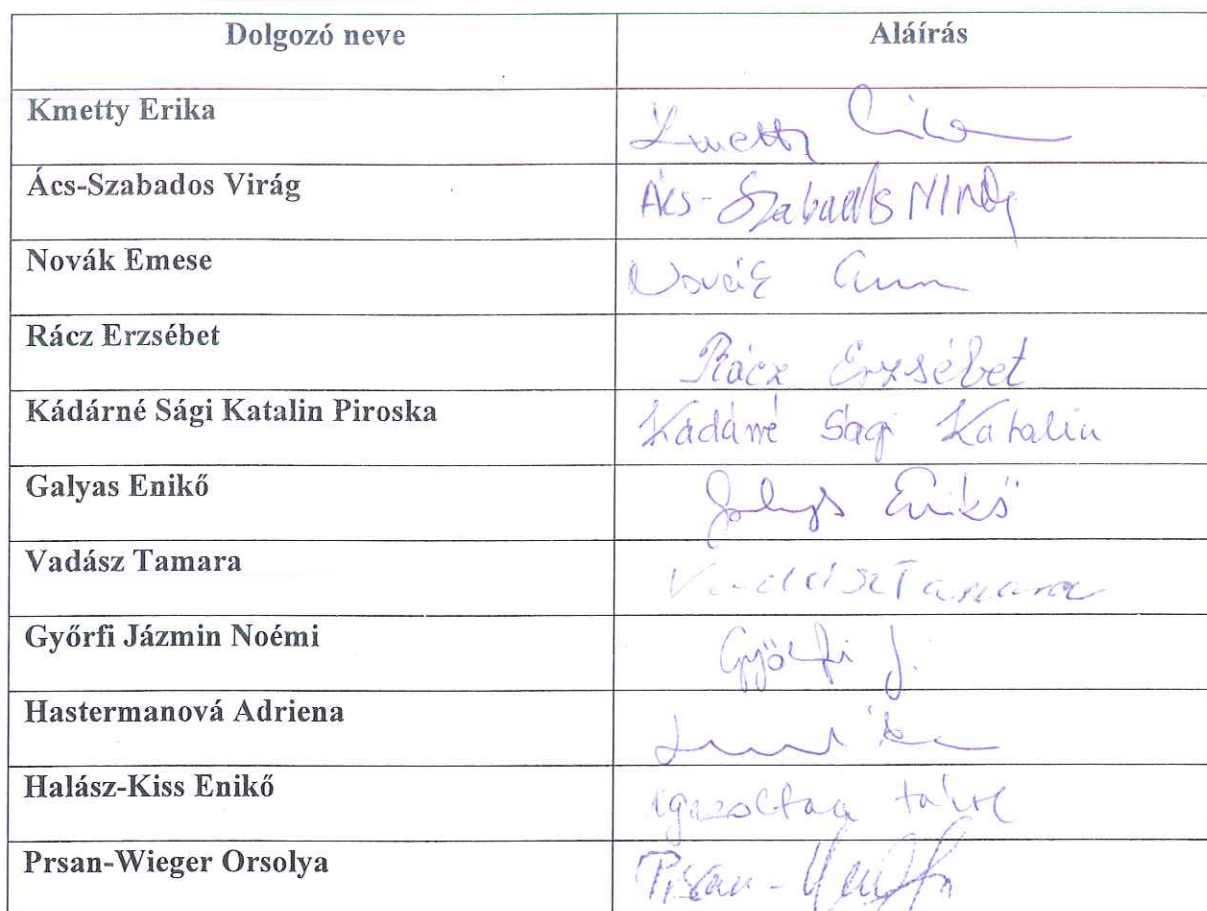 Dolgozó neve Aláírás
Kmetty Erika Kmetty Erika
Ács-Szabados Virág Ács-Szabados Virág
Novák Emese Novák
Rácz Erzsébet Rácz Erzsébet
Kádárné Sági Katalin Piroska Kádárné Sági Katalin
Galyas Enikő Galyas Enikő
Vadász Tamara Vadász Tamara
Győrfi Jázmin Noémi Győrfi J.
Hastermanová Adriena
Halász-Kiss Enikő igazoltan távol
Prsan-Wieger Orsolya Prsan-